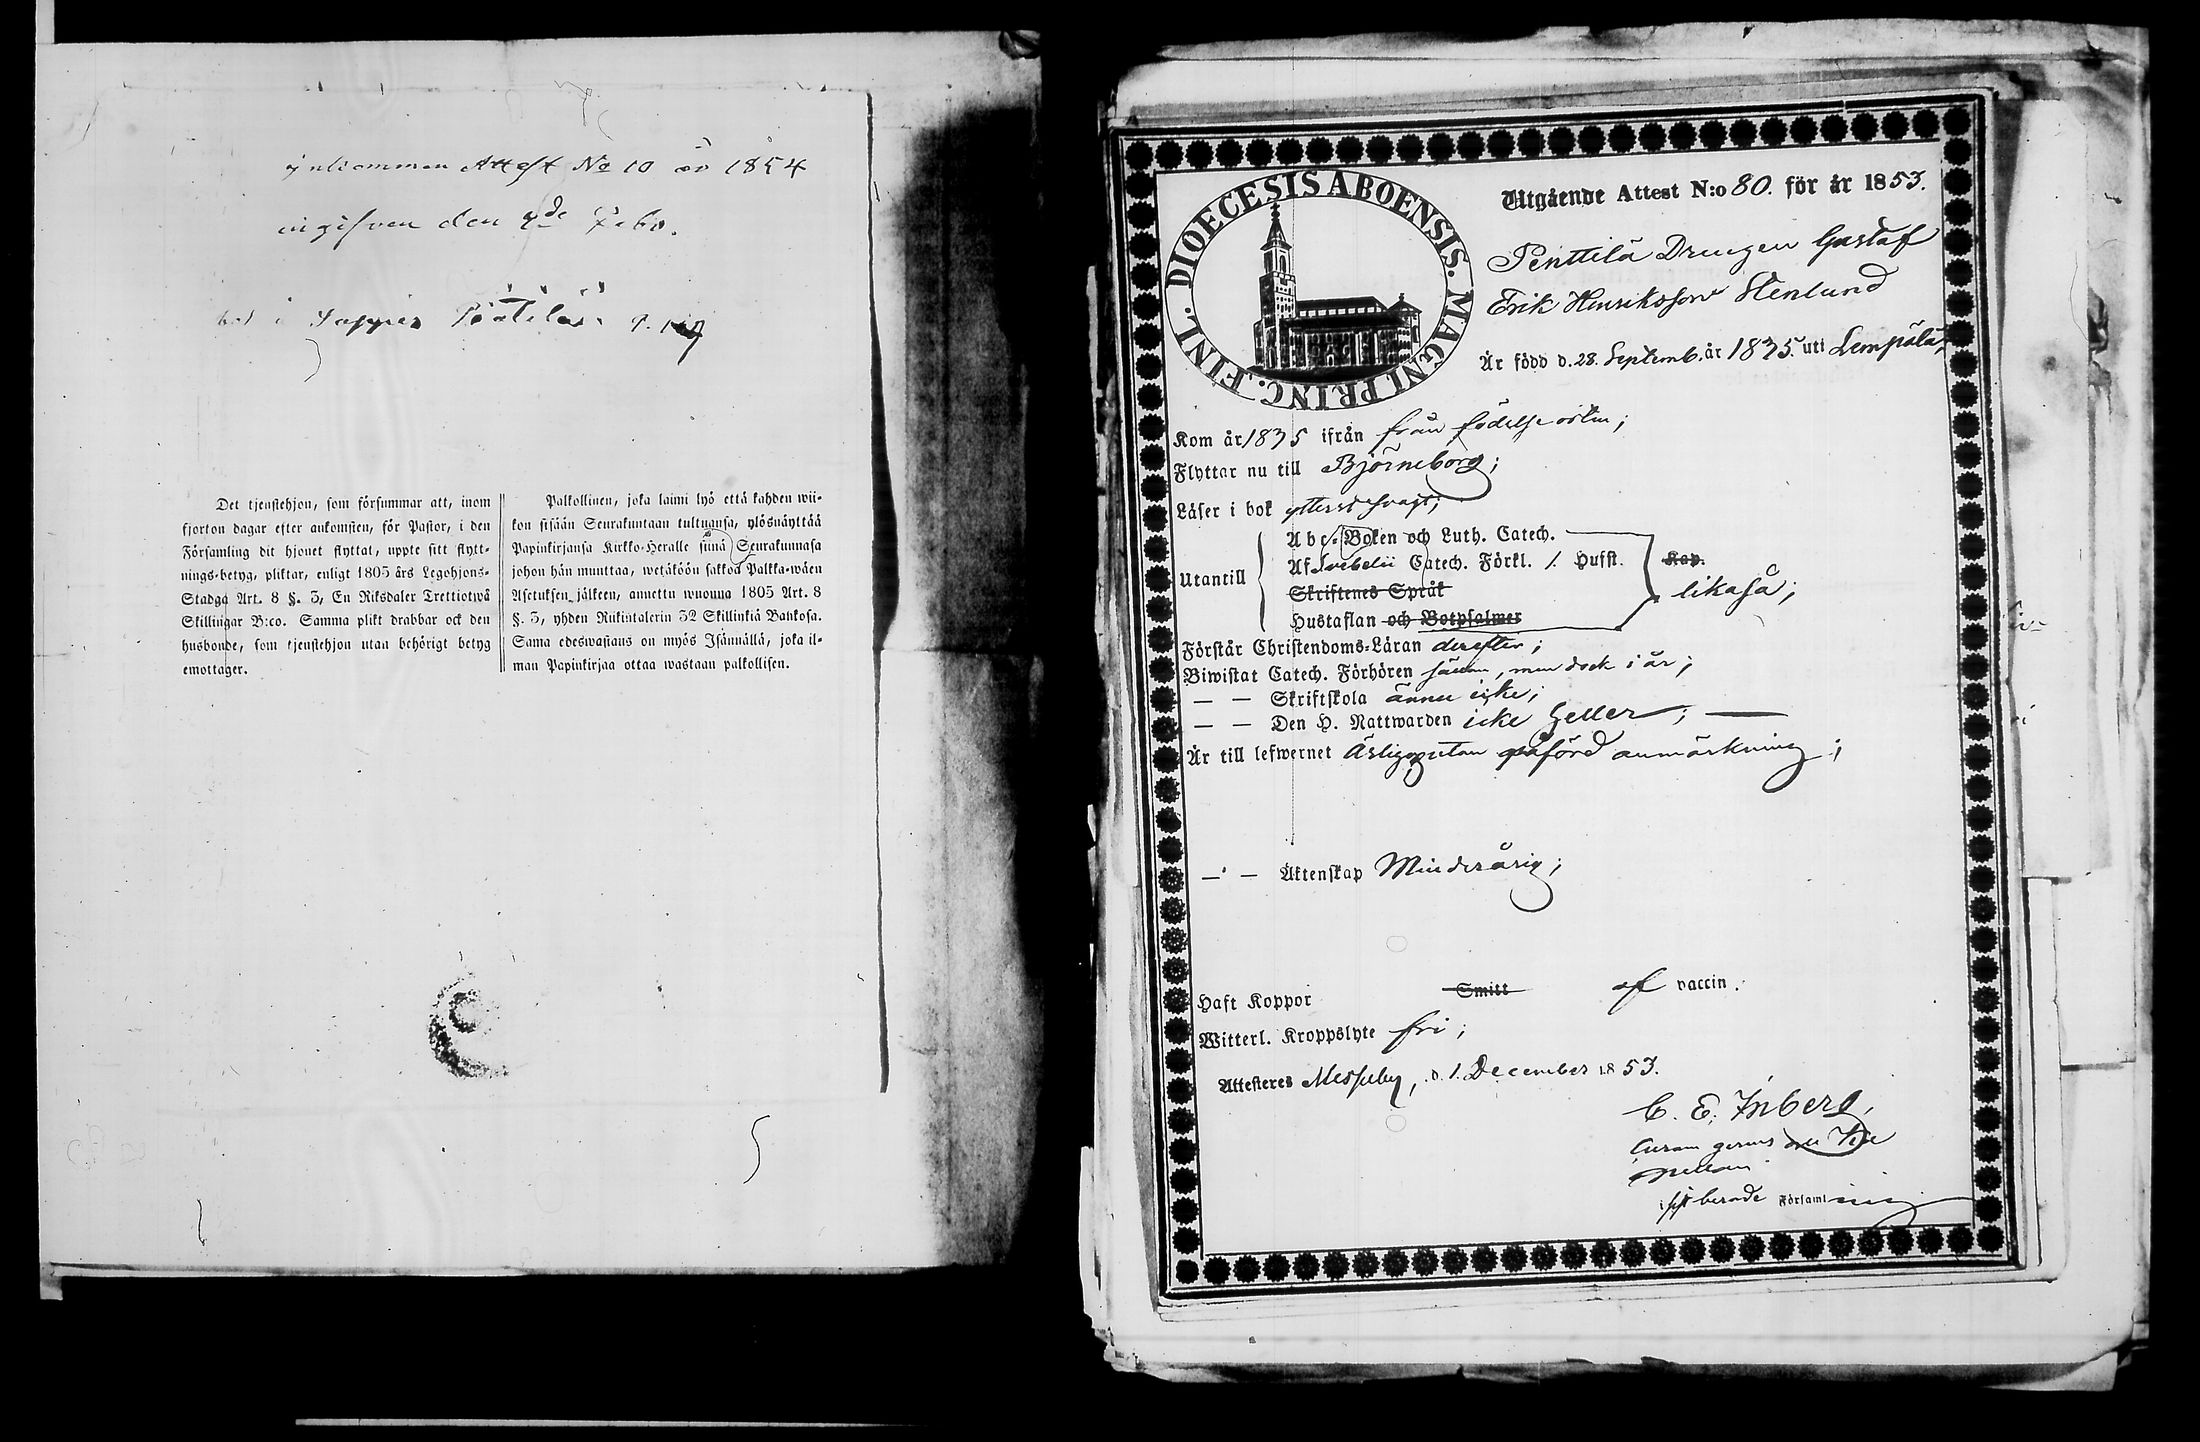 Inkommen Attest No 10 år 1854
ingifven den 9de Febr.
Det tjenstehjon, som försummar att, inom
fjorton dagar efter ankomsten, för Pastor, i den
Församling dit hjonet flyttat, uppte sitt flytt-
nings-betyg, pliktar, enligt 1805 års Legohjons-
Stadga Art. 8 §. 3, En Riksdaler Trettiotwå
Skillingar B:co. Samma plikt drabbar ock den
husbonde, som tjenstehjon utan behörigt betyg
emottager.
Palkollinen, joka laimi lyö että kahden wii-
kon sisään Seurakuntaan tultuansa, ylösnäyttää
Papinkirjansa Kirkko-Heralle siinä Seurakunnasa
johon hän muuttaa, wetäköön sakkoa Palkka-wäen
Asetuksen jälkeen, annettu wuonna 1805 Art. 8
§. 3, yhden Riikintalerin 32 Skillinkiä Bankosa.
Sama edeswastaus on myös Isännällä, joka il-
man Papinkirjaa ottaa wastaan palkollisen.
DIOECESIS ABOENSIS. MAGNI PRINC. FINL.
Utgående Attest N:o 80. för år 1853.
Penttilä Drengen Gustaf
Erik Henriksson Stenlund
Är född d. 28. Septemb. år 1835. uti Lempälä;
Kom år 1835 ifrån från födelseorten;
Flyttar nu till Björneborg;
Läser i bok ytterst svagt;
Utantill
Abc-Boken och Luth. Catech.
Af Svebelii Catech. Förkl. /. Hufst.
Skriftenes Språk
Hustaflan och Botpsalmer
Kap.
likaså;
Förstår Christendoms-Läran derefter;
Biwistat Catech. Förhören sällan, men dock i år;
— — Skriftskola ännu icke;
— — Den H. Nattwarden icke heller; —
Är till lefwernet Ärlig, utan påförd anmärkning;
— — Äktenskap Minderårig;
Haft Koppor Smitt af vaccin.
Witterl. Kroppslyte fri;
Attesteres Messuby, d. 1. December 1853.
C. E. Inberg,
Curam gerens
i berörde Församling